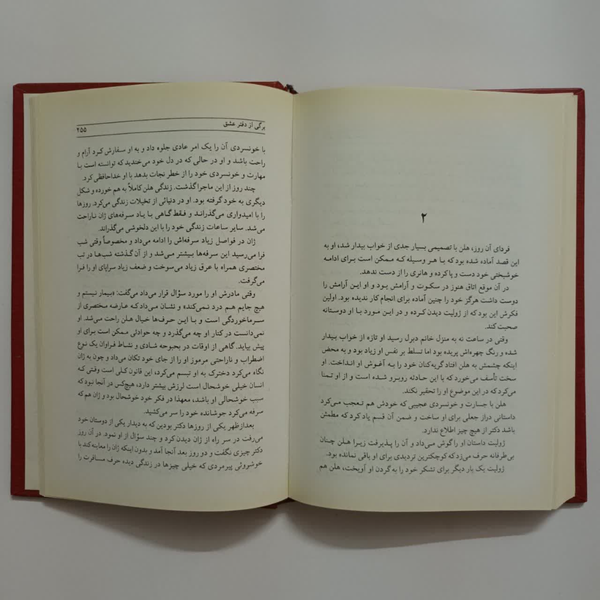 ۲
فردای آن روز، هلن با تصمیمی بسیار جدی از خواب بیدار شد، او به
این قصد آماده شده بود که با هر وسیله که ممکن است برای ادامه
خوشبختی خود دست و پا کرده و هانری را از دست ندهد.
در آن موقع اتاق هنوز در سکوت و آرامش بود و او این آرامش را
دوست داشت هرگز خود را چنین آماده برای انجام کار ندیده بود. اولین
فکرش این بود که از ژولیت دیدن کرده و در این مورد با او دوستانه
صحبت کند.
وقتی در ساعت نه به منزل خانم دبرل رسید او تازه از خواب بیدار
شده و رنگ چهره‌اش پریده بود اما تسلط بر نفس او زیاد بود و به محض
اینکه چشمش به هلن افتاد گریه‌کنان خود را به آغوش او انداخت. او
سخت تأسف می‌خورد که با این حادثه روبرو شده است و از او تمنا
می‌کرد که در این موضوع او را تحقیر نکند.
هلن با جسارت و خونسردی عجیبی که خودش هم تعجب می‌کرد
داستانی دراز جعلی برای او ساخت و ضمن آن قسم یاد کرد که مطمئن
باشد دکتر از هیچ چیز اطلاع ندارد.
ژولیت داستان او را گوش می‌داد و آن را پذیرفت زیرا هلن چنان
بی‌طرفانه حرف می‌زد که کوچکترین تردیدی برای او باقی نمانده بود.
ژولیت یک بار دیگر برای تشکر خود را به گردن او آویخت، هلن هم
برگی از دفتر عشق ۲۵۵
با خونسردی آن را یک امر عادی جلوه داد و به او سفارش کرد آرام و
راحت باشد و او در حالی که در دل خود می‌خندید که توانسته است با
مهارت و خونسردی خود را از خطر نجات بدهد با او خداحافظی کرد.
چند روز از این ماجرا گذشت. زندگی هلن کاملاً به هم خورده و شکل
دیگری به خود گرفته بود. او در دنیائی از تخیلات زندگی می‌کرد. روزها
را با امیدواری می‌گذراند و فقط گاهی با یاد سرفه‌های ژان ناراحت
می‌شد. سایر ساعات زندگی خود را با این دلخوشی می‌گذراند.
ژان در فواصل زیاد سرفه‌اش را ادامه می‌داد و مخصوصاً وقتی شب
فرا می‌رسید این سرفه‌ها بیشتر می‌شد و از آن گذشته شب‌ها در تب
مختصری همراه با عرق زیاد می‌سوخت و ضعف زیاد سراپای او را فرا
می‌گرفت.
وقتی مادرش او را مورد سؤال قرار می‌داد می‌گفت: «بیمار نیستم و
هیچ جایم هم درد نمی‌کند» و نشان می‌داد که عارضه مختصری از
سرماخوردگی است و با این حرف‌ها خیال هلن راحت می‌شد و
نمی‌دانست در کنار او چه می‌گذرد و چه حوادثی ممکن است برای او
پیش بیاید. گاهی از اوقات در بحبوحه شادی و نشاط فراوان یک نوع
اضطراب و ناراحتی مرموز او را از جای خود تکان می‌داد و چون به ژان
نگاه می‌کرد دخترک به او تبسم می‌کرد، این قانون کلی است وقتی که
انسان خیلی خوشحال است لرزش بیشتر دارد، هیچ‌کس در آنجا نبود که
سبب خوشحالی او باشد، معهذا در فکر خود خوشحال بود و ژان هم که
سرفه می‌کرد جوشانده خود را سر می‌کشید.
بعدازظهر یکی از روزها دکتر بودین که به دیدار یکی از دوستان خود
می‌رفت در سر راه از ژان دیدن کرد و چند سؤال از او نمود. در آن روز
دکتر چیزی نگفت و دو روز بعد آنجا آمد و بدون اینکه ژان را معاینه کند با
خوشروئی پیرمردی که خیلی چیزها در زندگی دیده حرف مسافرت را